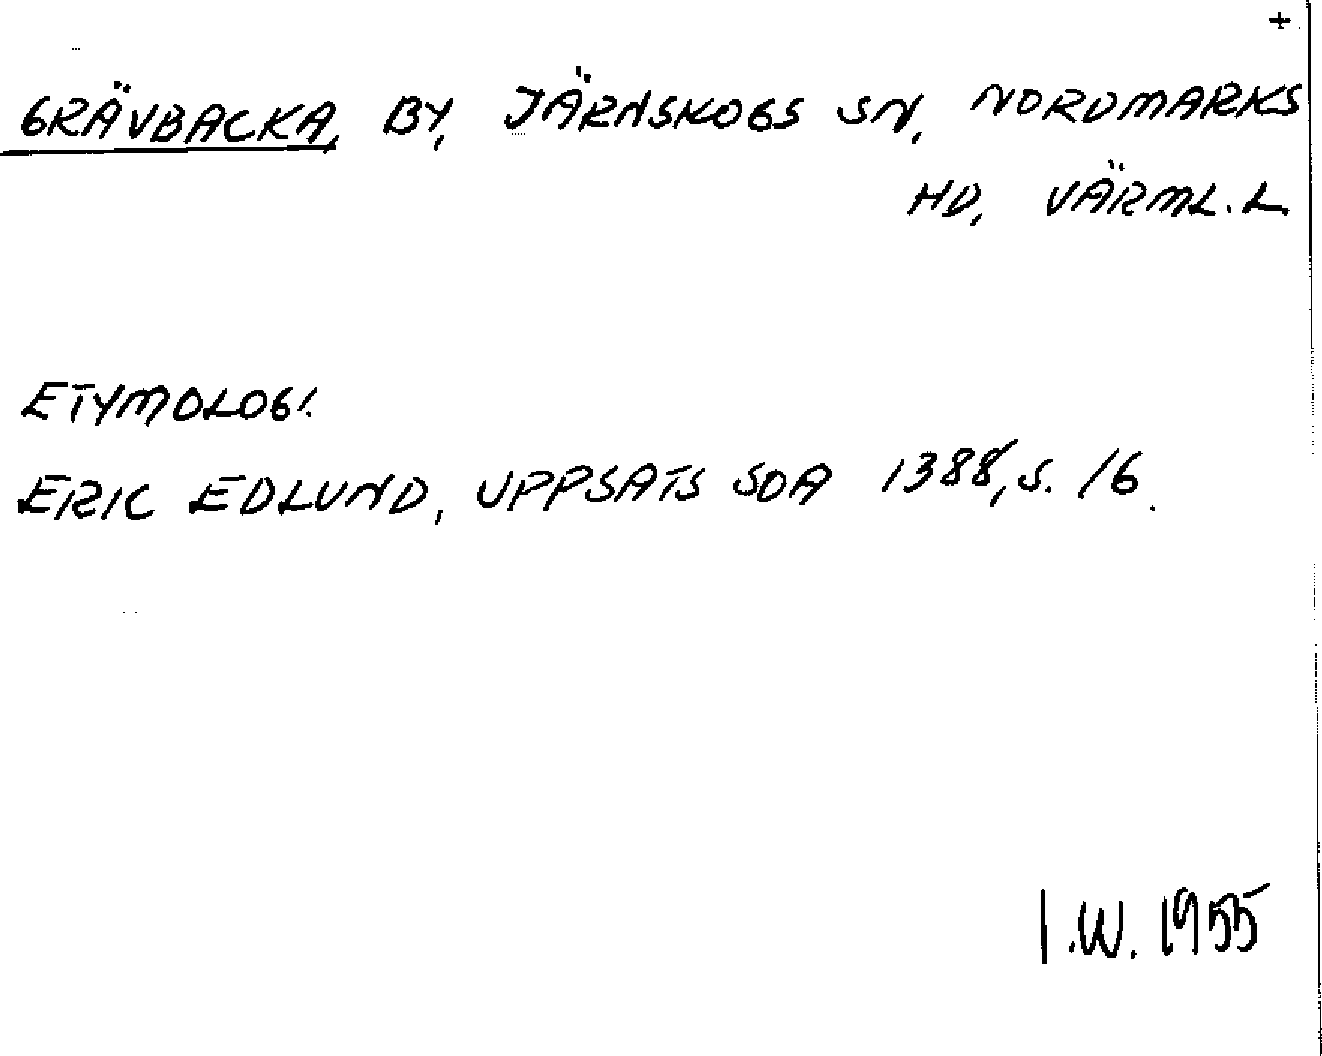 +
GRÄVBACKA, BY, JÄRNSKOGS SN, NORDMARKS
HD, VÄRML. L
ETYMOLOGI.
ERIC EDLUND, UPPSATS SOA 1388, S. 16.
I.W. 1955